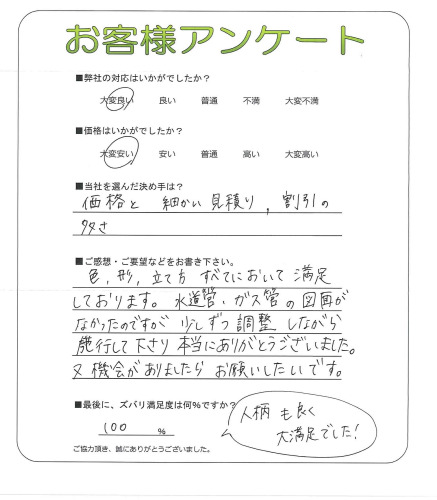 お客様アンケート
■弊社の対応はいかがでしたか？
大変良い　良い　普通　不満　大変不満
■価格はいかがでしたか？
大変安い　安い　普通　高い　大変高い
■当社を選んだ決め手は？
価格と 細かい見積り，割引の
多さ
■ご感想・ご要望などをお書き下さい。
色，形，立て方 すべてにおいて 満足
しております。水道管・ガス管の図面が
なかったのですが 少しずつ調整しながら
施行して下さり本当にありがとうございました。
又機会がありましたら お願いしたいです。
■最後に、ズバリ満足度は何％ですか？
100 ％
人柄も良く
大満足でした！
ご協力頂き、誠にありがとうございました。